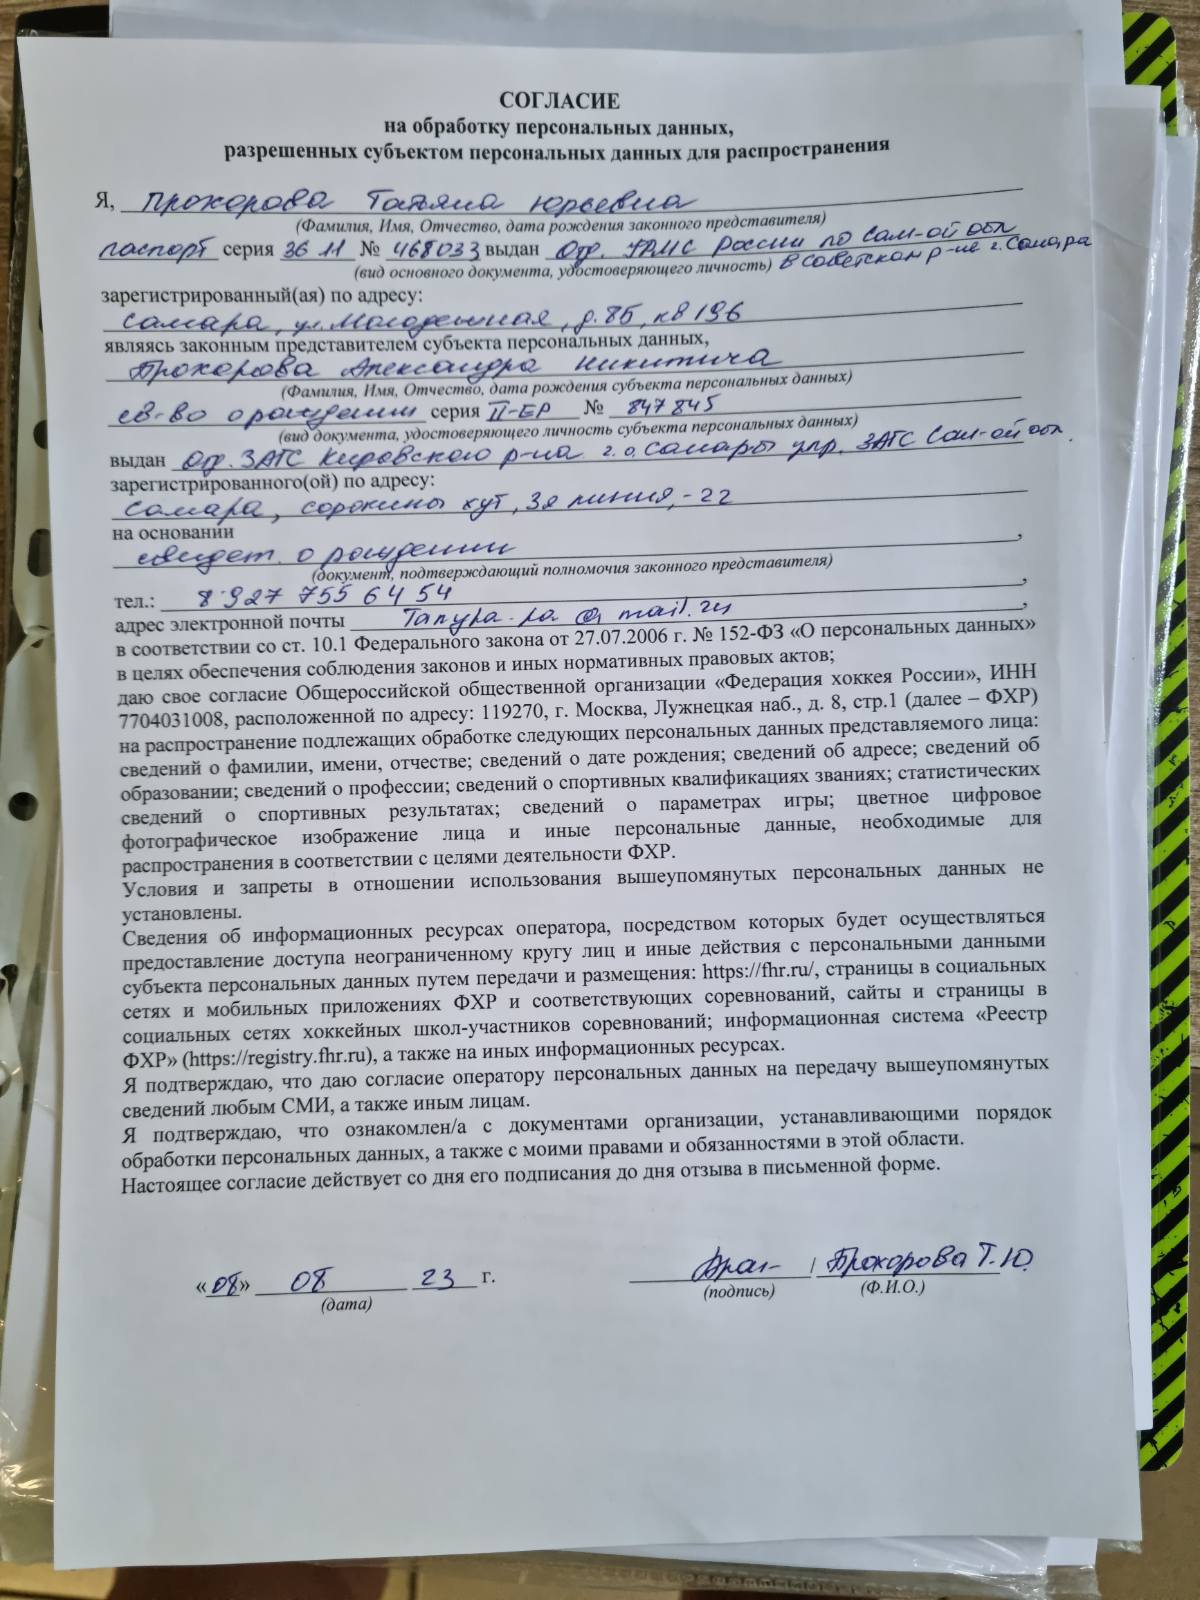 СОГЛАСИЕ
на обработку персональных данных,
разрешенных субъектом персональных данных для распространения
Я, Прохорова Татьяна Юрьевна
(Фамилия, Имя, Отчество, дата рождения законного представителя)
паспорт серия 36 11 № 468033 выдан Отд. УФМС России по Сам-ой обл
(вид основного документа, удостоверяющего личность) в Советском р-не г. Самара
зарегистрированный(ая) по адресу:
Самара, ул. Молодежная, д. 8Б, кв 196
являясь законным представителем субъекта персональных данных,
Прохорова Александра Никитича
(Фамилия, Имя, Отчество, дата рождения субъекта персональных данных)
св-во о рождении серия II-ЕР № 847845
(вид документа, удостоверяющего личность субъекта персональных данных)
выдан Отд. ЗАГС Кировского р-на г.о. Самары упр. ЗАГС Сам-ой обл.
зарегистрированного(ой) по адресу:
Самара, сорокины хут, 3я линия, -22
на основании
свидет. о рождении ,
(документ, подтверждающий полномочия законного представителя)
тел.: 8 927 755 64 54 ,
адрес электронной почты @ mail.ru ,
в соответствии со ст. 10.1 Федерального закона от 27.07.2006 г. № 152-ФЗ «О персональных данных»
в целях обеспечения соблюдения законов и иных нормативных правовых актов;
даю свое согласие Общероссийской общественной организации «Федерация хоккея России», ИНН
7704031008, расположенной по адресу: 119270, г. Москва, Лужнецкая наб., д. 8, стр.1 (далее – ФХР)
на распространение подлежащих обработке следующих персональных данных представляемого лица:
сведений о фамилии, имени, отчестве; сведений о дате рождения; сведений об адресе; сведений об
образовании; сведений о профессии; сведений о спортивных квалификациях званиях; статистических
сведений о спортивных результатах; сведений о параметрах игры; цветное цифровое
фотографическое изображение лица и иные персональные данные, необходимые для
распространения в соответствии с целями деятельности ФХР.
Условия и запреты в отношении использования вышеупомянутых персональных данных не
установлены.
Сведения об информационных ресурсах оператора, посредством которых будет осуществляться
предоставление доступа неограниченному кругу лиц и иные действия с персональными данными
субъекта персональных данных путем передачи и размещения: https://fhr.ru/, страницы в социальных
сетях и мобильных приложениях ФХР и соответствующих соревнований, сайты и страницы в
социальных сетях хоккейных школ-участников соревнований; информационная система «Реестр
ФХР» (https://registry.fhr.ru), а также на иных информационных ресурсах.
Я подтверждаю, что даю согласие оператору персональных данных на передачу вышеупомянутых
сведений любым СМИ, а также иным лицам.
Я подтверждаю, что ознакомлен/а с документами организации, устанавливающими порядок
обработки персональных данных, а также с моими правами и обязанностями в этой области.
Настоящее согласие действует со дня его подписания до дня отзыва в письменной форме.
«08» 08 23 г. / Прохорова Т.Ю.
(дата) (подпись) (Ф.И.О.)